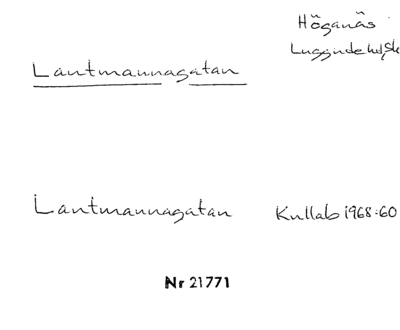 Höganäs
Luggude hd, Sk
Lantmannagatan
Lantmannagatan Kullab 1968:60
Nr 21771